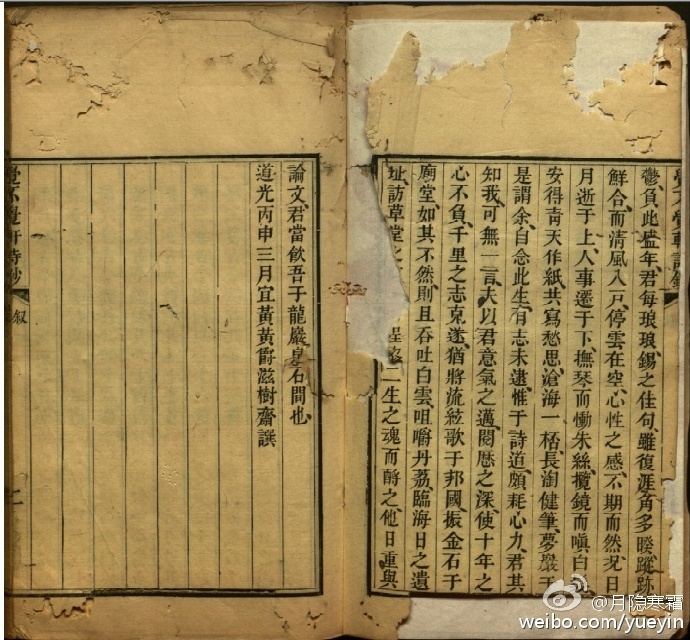 鬱負此盛年君每琅琅錫之佳句雖復涯角多睽蹤跡
鮮合而清風入戸停雲在空心性之感不期而然況日
月逝于上人事遷于下撫琴而慟朱絲攬鏡而嗔白
安得靑天作紙共寫愁思滄海一桮長淘健筆夢嚴子
是謂余自念此生有志未逮惟于詩道頗耗心力君其
知我可無一言夫以君意氣之邁閱歴之深使十年之
心不負千里之志克遂猶將流絃歌于邦國振金石于
廟堂如其不然則且吞吐白雲咀嚼丹荔臨海日之遺
址訪草堂之 二生之魂而酹之他日重與
論文君當飮吾于龍巖 石間也
道光丙申三月宜黃黃爵滋樹齋譔
覺不覺軒詩鈔
叙
二
@月隐寒霜
weibo.com/yueyin